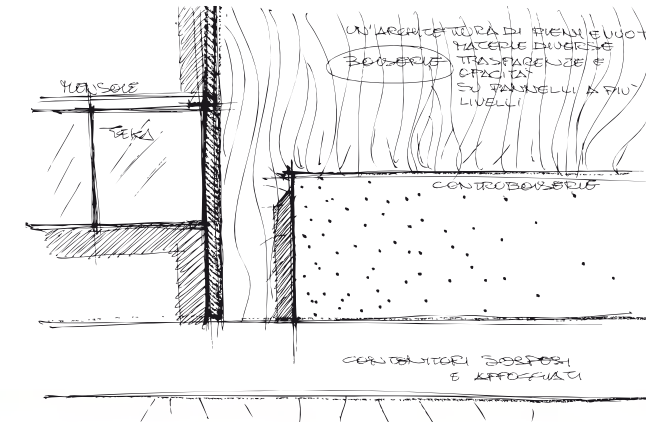 UN'ARCHITETTURA DI PIENI E VUOT
MATERIE DIVERSE
BOISERIE TRASPARENZE E
OPACITA'
SU PANNELLI A PIU'
LIVELLI
MENSOLE
TEKA
CONTROBOISERIE
CONTENITORI SOSPESI
E APPOGGIATI